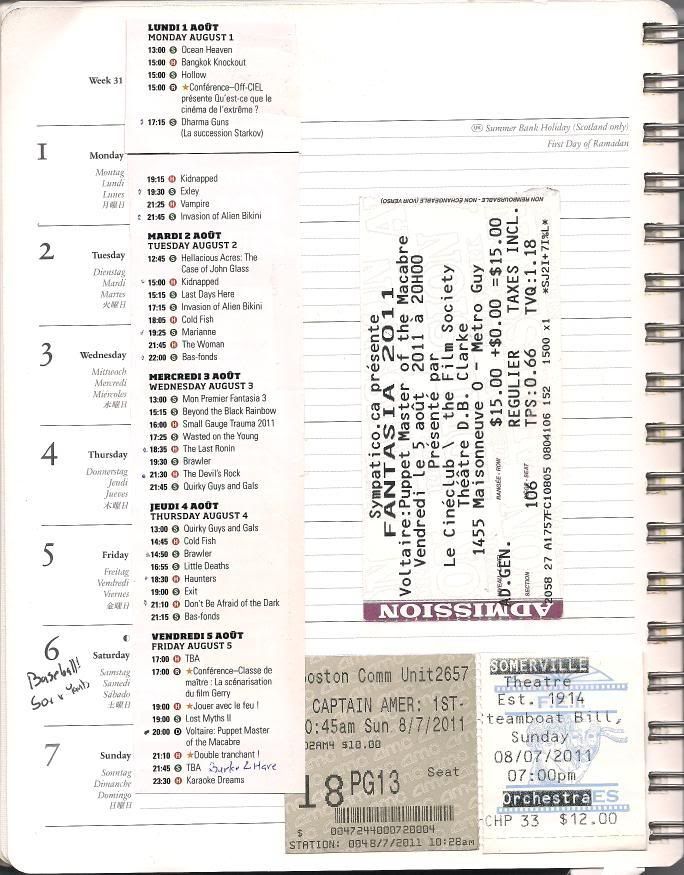 Week 31
1
Monday
Montag
Lundi
Lunes
月曜日
2
Tuesday
Dienstag
Mardi
Martes
火曜日
3
Wednesday
Mittwoch
Mercredi
Miércoles
水曜日
4
Thursday
Donnerstag
Jeudi
Jueves
木曜日
5
Friday
Freitag
Vendredi
Viernes
金曜日
6
Saturday
Samstag
Samedi
Sábado
土曜日
Baseball!
Sox v Yanks
7
Sunday
Sonntag
Dimanche
Domingo
日曜日
LUNDI 1 AOÛT
MONDAY AUGUST 1
13:00 S Ocean Heaven
15:00 H Bangkok Knockout
15:00 S Hollow
15:00 R ★Conférence–Off-CIEL
présente Qu'est-ce que le
cinéma de l'extrême ?
17:15 S Dharma Guns
(La succession Starkov)
19:15 H Kidnapped
19:30 S Exley
21:25 H Vampire
21:45 S Invasion of Alien Bikini
MARDI 2 AOÛT
TUESDAY AUGUST 2
12:45 S Hellacious Acres: The
Case of John Glass
15:00 H Kidnapped
15:15 S Last Days Here
17:15 S Invasion of Alien Bikini
18:05 H Cold Fish
19:25 S Marianne
21:45 H The Woman
22:00 S Bas-fonds
MERCREDI 3 AOÛT
WEDNESDAY AUGUST 3
13:00 S Mon Premier Fantasia 3
15:15 S Beyond the Black Rainbow
16:00 H Small Gauge Trauma 2011
17:25 S Wasted on the Young
18:35 H The Last Ronin
19:30 S Brawler
21:30 H The Devil's Rock
21:45 S Quirky Guys and Gals
JEUDI 4 AOÛT
THURSDAY AUGUST 4
13:00 S Quirky Guys and Gals
14:45 H Cold Fish
14:50 S Brawler
16:55 S Little Deaths
18:30 H Haunters
19:00 S Exit
21:10 H Don't Be Afraid of the Dark
21:15 S Bas-fonds
VENDREDI 5 AOÛT
FRIDAY AUGUST 5
17:00 H TBA
17:00 R ★Conférence–Classe de
maître : La scénarisation
du film Gerry
19:00 H ★Jouer avec le feu !
19:00 S Lost Myths II
20:00 D Voltaire: Puppet Master
of the Macabre
21:10 H ★Double tranchant !
21:45 S TBA Burke & Hare
23:30 H Karaoke Dreams
UK Summer Bank Holiday (Scotland only)
First Day of Ramadan
NON REMBOURSABLE - NON ÉCHANGEABLE (VOIR VERSO)
Sympatico.ca présente
FANTASIA 2011
Voltaire:Puppet Master of the Macabre
Vendredi le 5 août 2011 à 20H00
Présenté par
Le Cinéclub \ the Film Society
Théâtre D.B. Clarke
1455 Maisonneuve O - Metro Guy
$15.00 +$0.00 =$15.00
REGULIER TAXES INCL.
TPS:0.66 TVQ:1.18
RANGÉE - ROW
SECTION
AD.GEN.
106
2058 27 A1757FC10805 0804106 152 1500 x1 *SJ2I+7I%L*
ADMISSION
oston Comm Unit2657
CAPTAIN AMER: 1ST-
0:45am Sun 8/7/2011
02AM4 $10.00
18 PG13 Seat
$ 0047244000720004
STATION: 004 8/7/2011 10:28am
SOMERVILLE
Theatre
Est. 1914
teamboat Bill,
Sunday
08/07/2011
07:00pm
Orchestra
CHP 33 $12.00